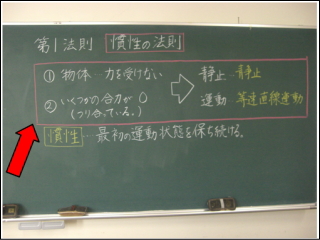 第1法則 慣性の法則
① 物体…力を受けない
静止…静止
② いくつかの合力が0
(つり合っている。)
運動…等速直線運動
慣性…最初の運動状態を保ち続ける。